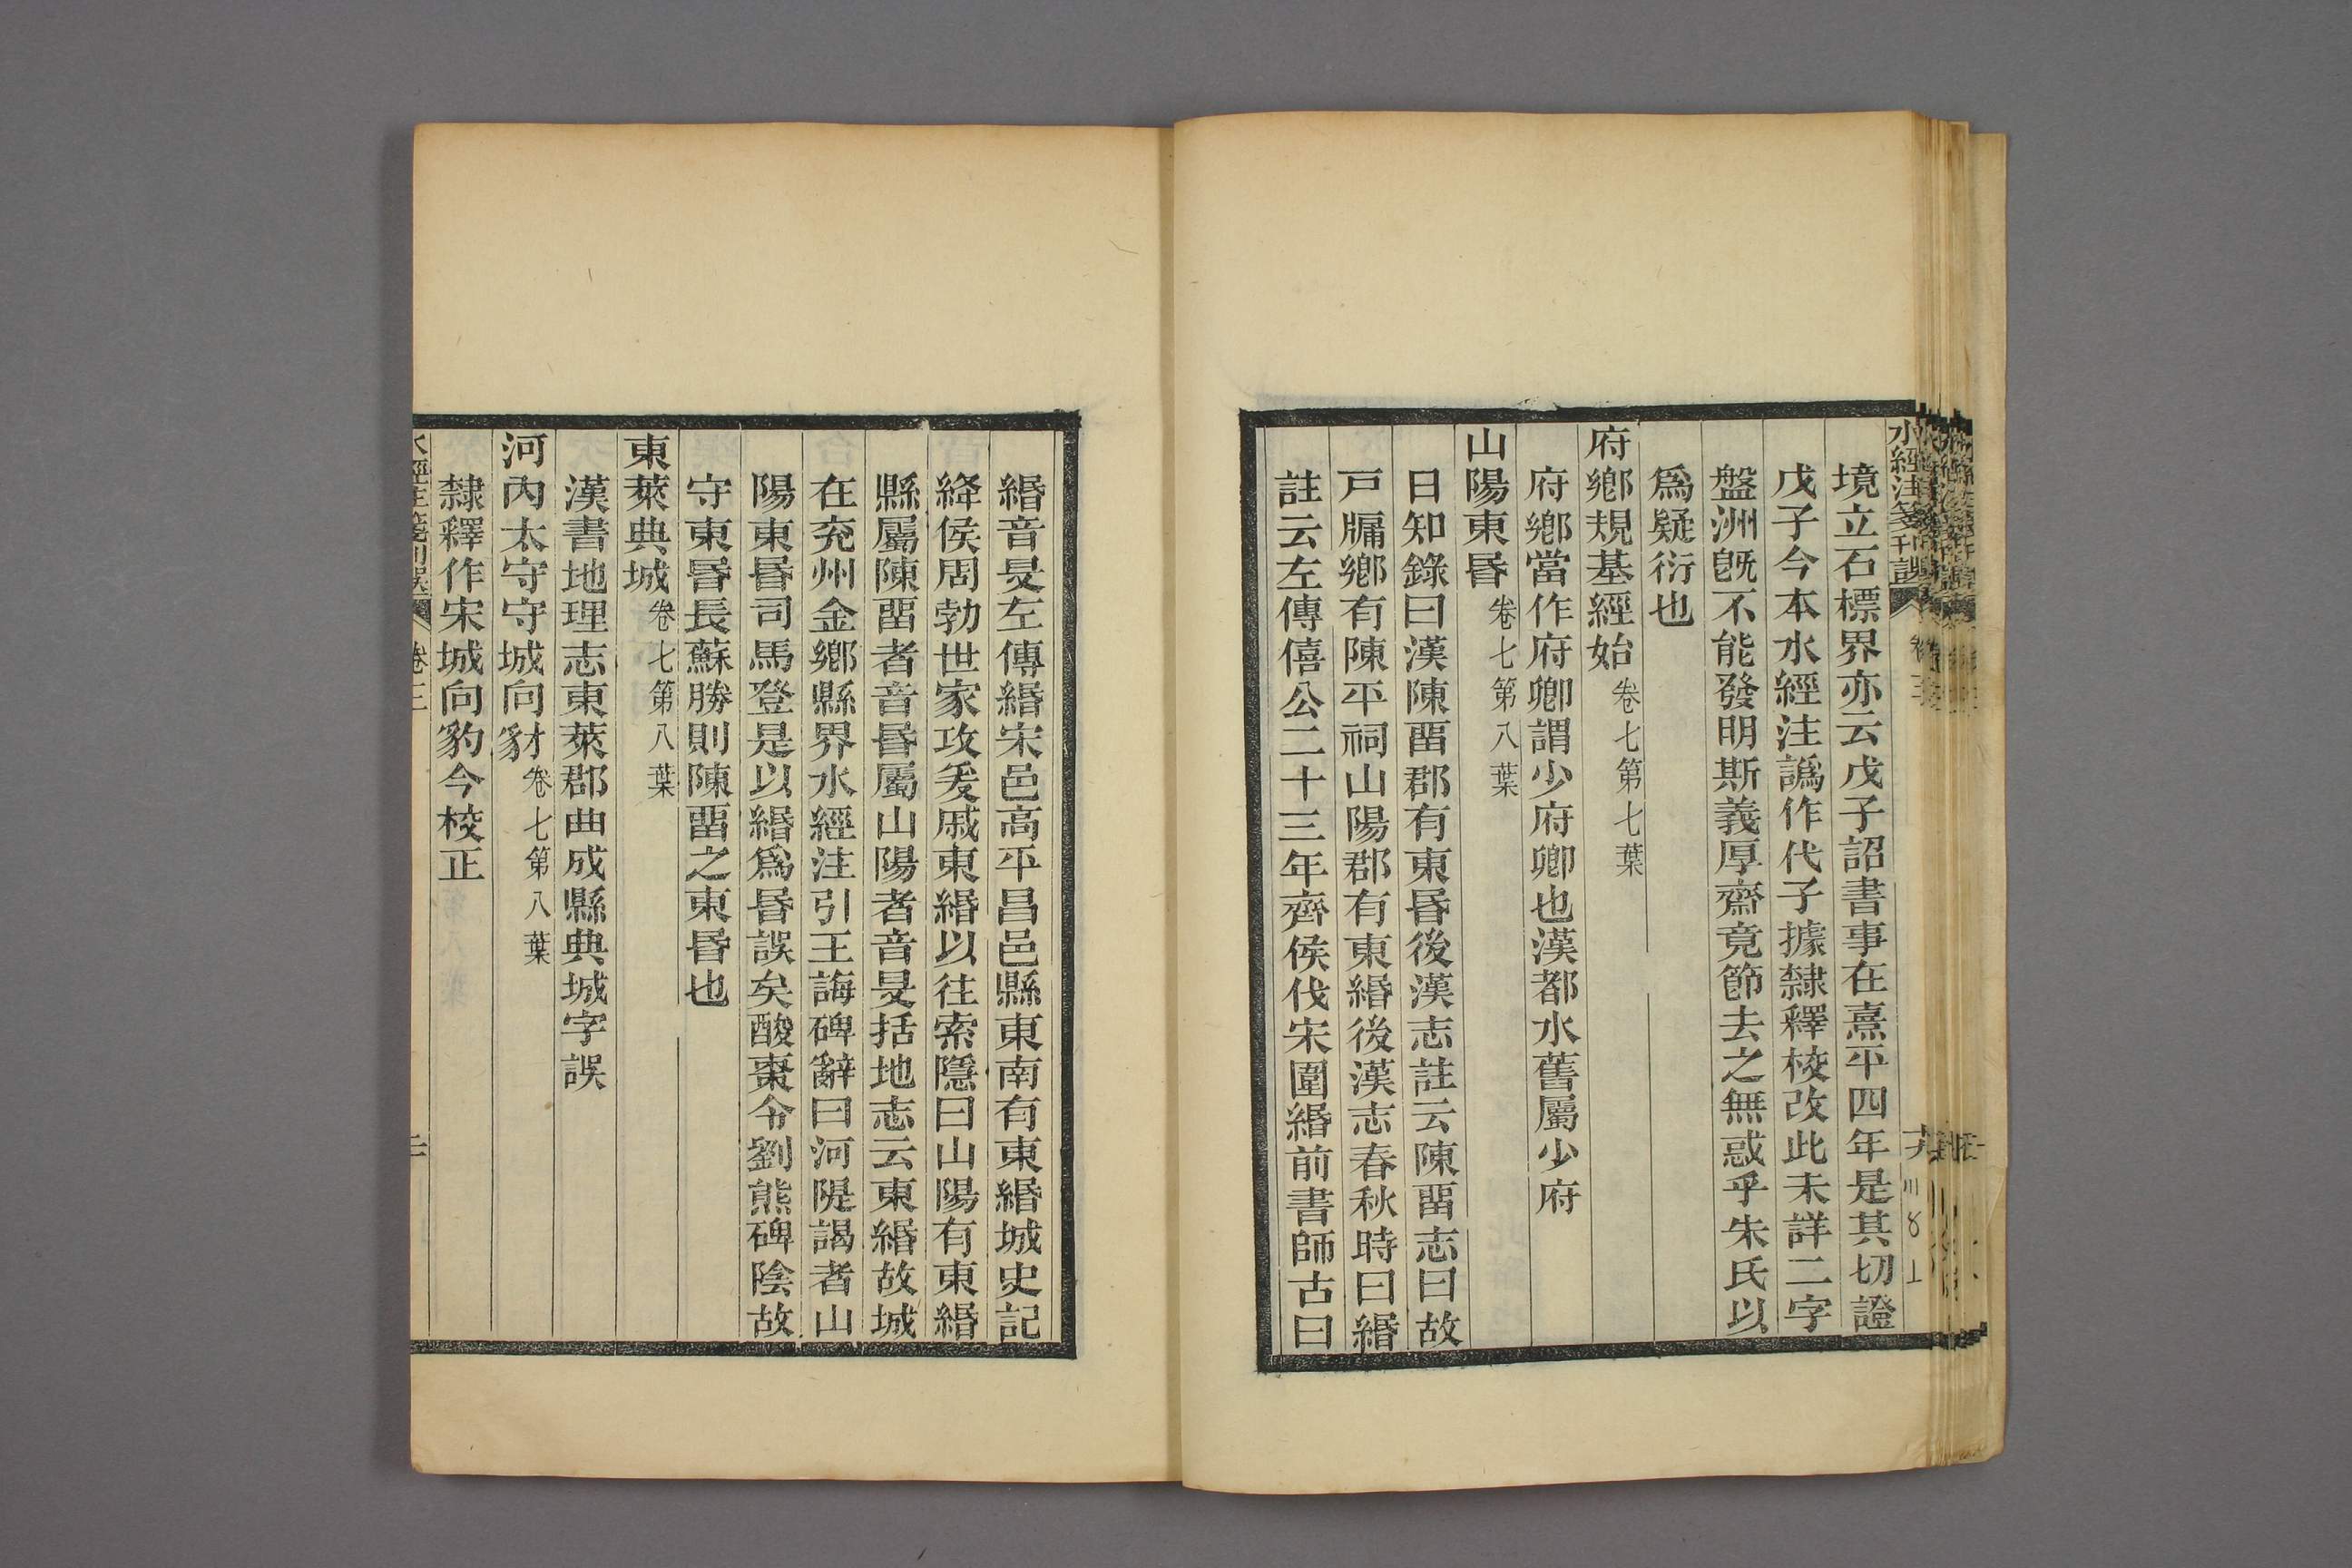 水經注箋刊誤 卷三 十九
境立石標界亦云戊子詔書事在熹平四年是其切證
戊子今本水經注譌作代子據隸釋校改此未詳二字
盤洲旣不能發明斯義厚齋竟節去之無惑乎朱氏以
爲疑衍也
府鄕規基經始卷七第七葉
府鄕當作府卿謂少府卿也漢都水舊屬少府
山陽東昬卷七第八葉
日知錄曰漢陳畱郡有東昬後漢志註云陳畱志曰故
戸牖鄕有陳平祠山陽郡有東緡後漢志春秋時曰緡
註云左傳僖公二十三年齊侯伐宋圍緡前書師古曰
緡音旻左傳緡宋邑高平昌邑縣東南有東緡城史記
絳侯周勃世家攻爰戚東緡以往索隱曰山陽有東緡
縣屬陳畱者音昬屬山陽者音旻括地志云東緡故城
在兖州金鄕縣界水經注引王誨碑辭曰河隄謁者山
陽東昬司馬登是以緡爲昬誤矣酸棗令劉熊碑陰故
守東昬長蘇勝則陳畱之東昬也
東萊典城卷七第八葉
漢書地理志東萊郡曲成縣典城字誤
河內太守守城向豺卷七第八葉
隸釋作宋城向豹今校正
水經注箋刊誤 卷三 二